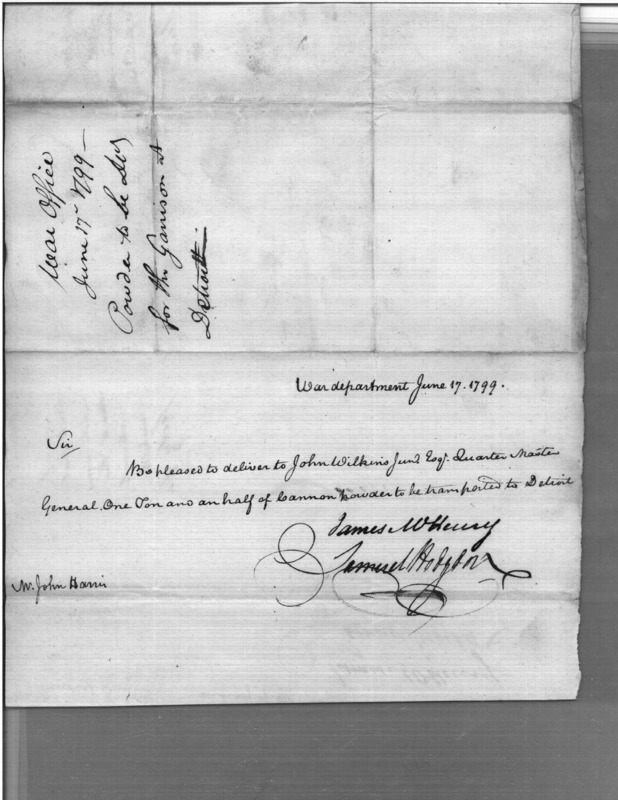 War Office
June 17th 1799 —
Powder to be
for the Garrison at
Detroit
War department June 17. 1799.
Sir
Be pleased to deliver to John Wilkins Junr Esqr. Quarter Master
General, One Ton and an half of Cannon powder to be transported to Detroit
James McHenry
Samuel Hodgdon
Mr. John Harris